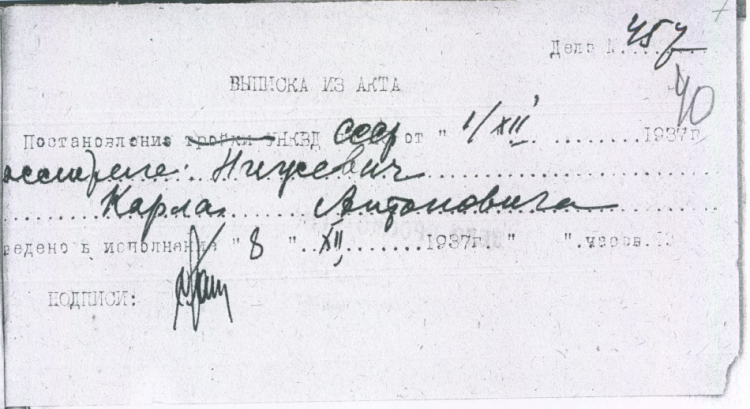 Дело № 457
40
ВЫПИСКА ИЗ АКТА
Постановление тройки НКВД СССР от " 1/XII 1937г
расстреле: Ницкевич
Карла Антоновича
ведено в исполнение " 8 " XII 1937г. " " часов.
ПОДПИСИ: